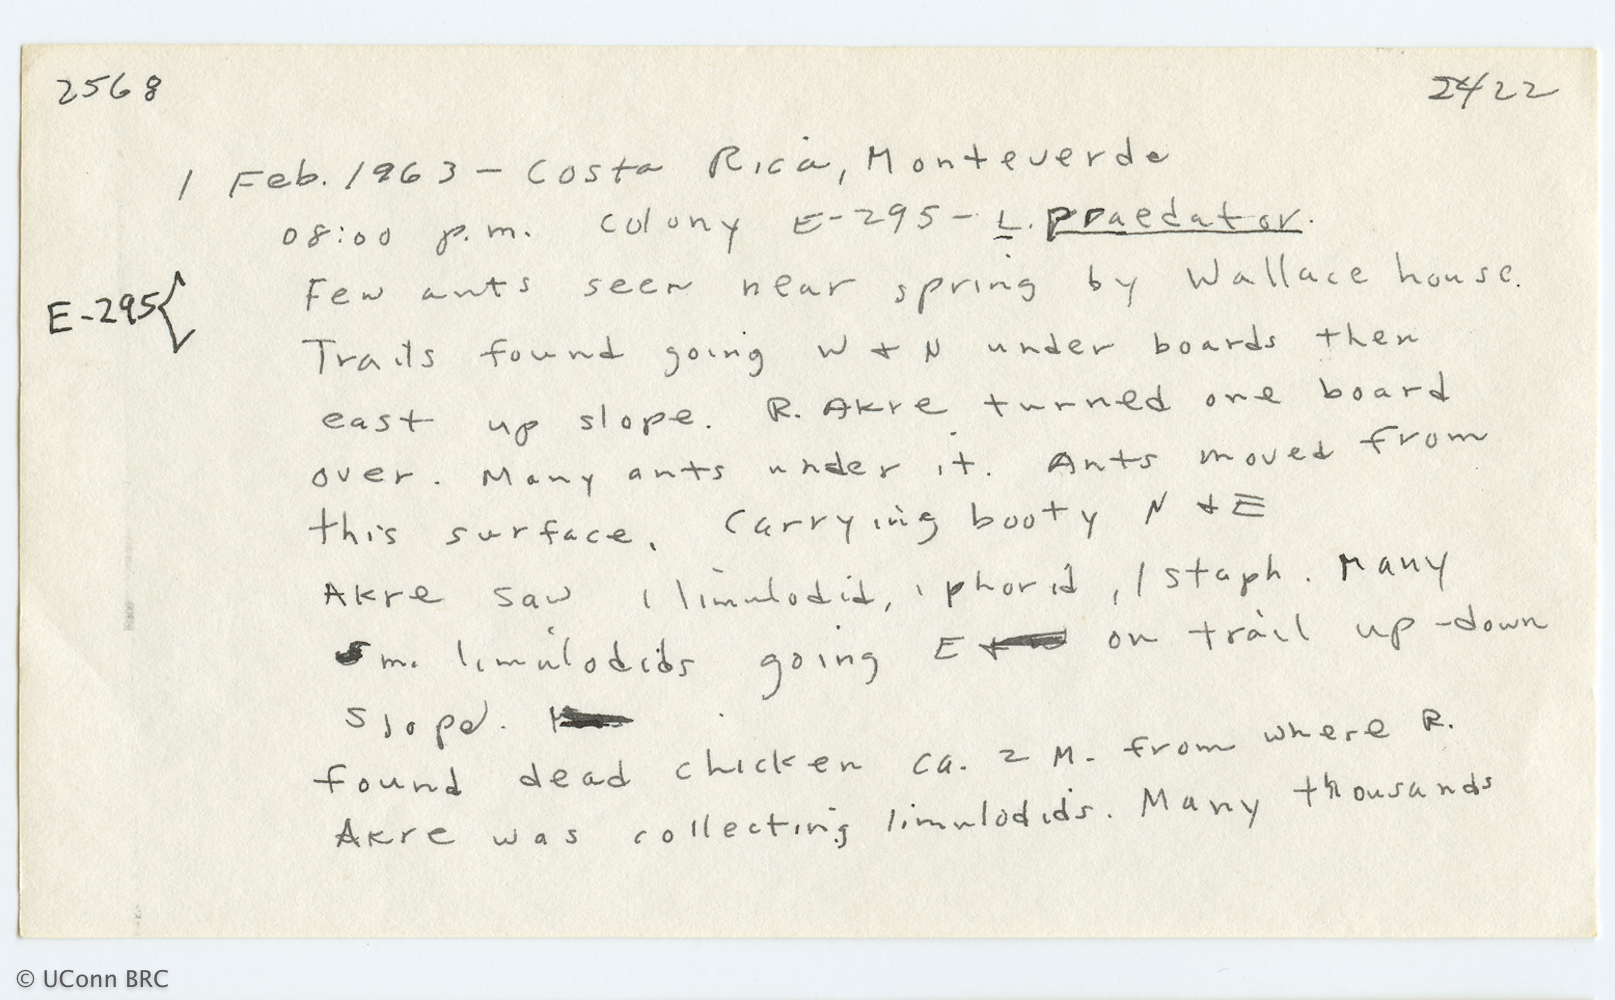 2568
2422
1 Feb. 1963 - Costa Rica, Monteverde
08:00 p.m. Colony E-295 - L. praedator.
E-295 {
Few ants seen near spring by Wallace house.
Trails found going W + N under boards then
east up slope. R. Akre turned one board
over. Many ants under it. Ants moved from
this surface. Carrying booty N + E
Akre saw 1 limulodid, 1 phorid, 1 staph. Many
sm. limulodids going E on trail up-down
slope.
Found dead chicken ca. 2 M. from where R.
Akre was collecting limulodids. Many thousands
© UConn BRC